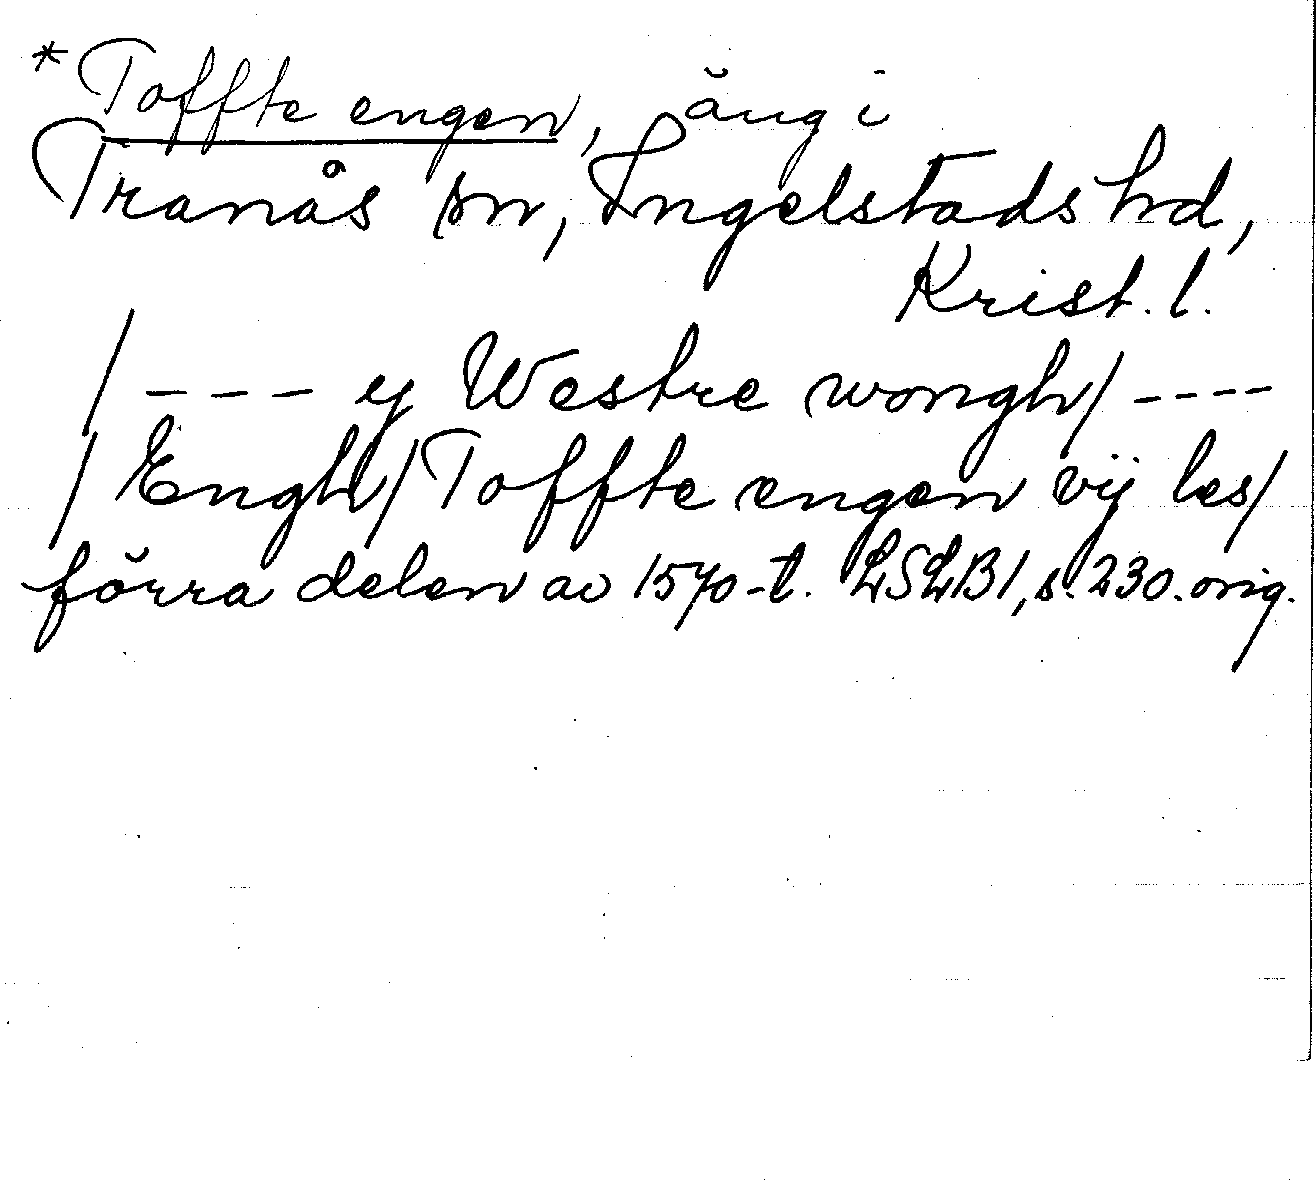 *Toffte engen, äng i
Tranås sn, Ingelstads hd,
Krist. l.
/ - - - ij Westre wongh/ - - - -
/Engh/ Toffte engen vij les/
förra delen av 1570-t. LSLB1, s. 230. orig.